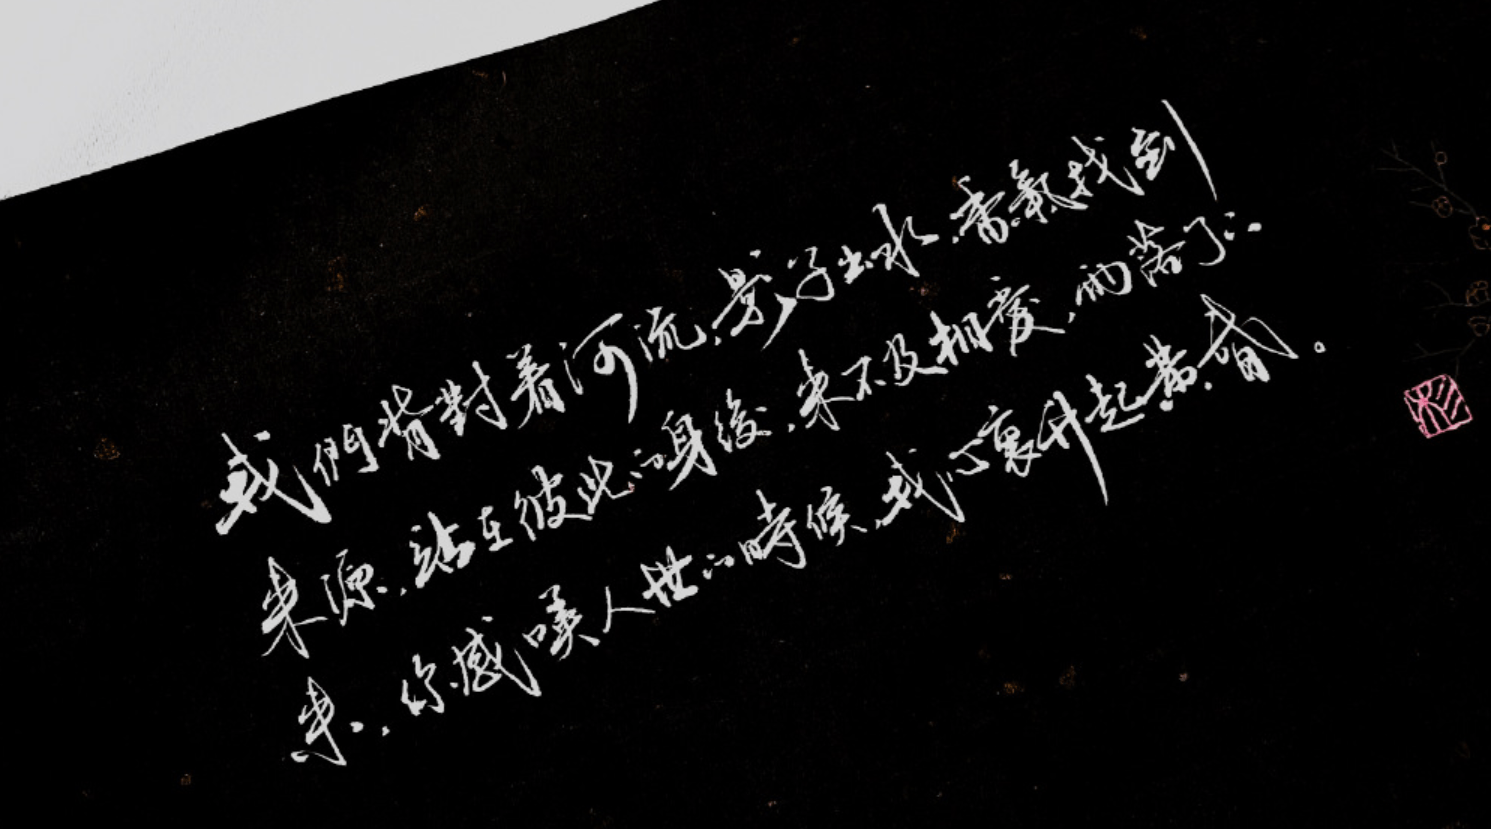 我們背對着河流，影子出水，香氣找到
來源，站在彼此的身後，來不及相愛，雨落了下
來，你感嘆人世的時候，我心裏升起黃昏。